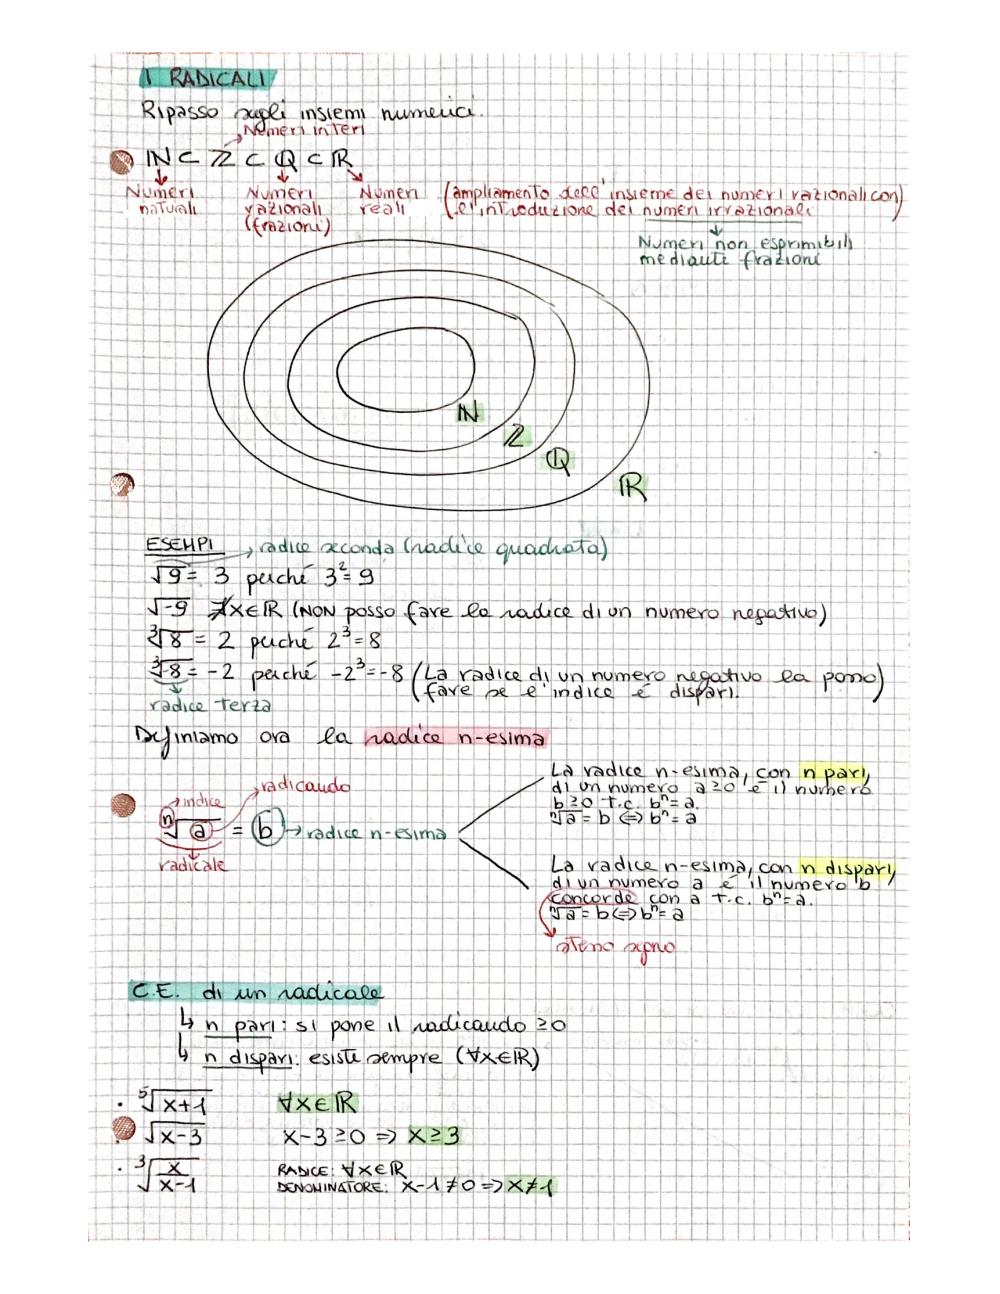 I RADICALI
Ripasso sugli insiemi numerici.
Numeri interi
ℕ ⊂ ℤ ⊂ ℚ ⊂ ℝ
Numeri naturali
Numeri razionali (frazioni)
Numeri reali
(ampliamento dell'insieme dei numeri razionali con
l'introduzione dei numeri irrazionali)
Numeri non esprimibili
mediante frazioni
ℕ
ℤ
ℚ
ℝ
ESEMPI → radice seconda (radice quadrata)
√9 = 3 perché 3² = 9
√-9 ∄x∈ℝ (NON posso fare la radice di un numero negativo)
³√8 = 2 perché 2³=8
³√-8 = -2 perché -2³=-8 (La radice di un numero negativo la posso
fare se l'indice é dispari.)
radice terza
Definiamo ora la radice n-esima
indice
radicando
ⁿ√a = b → radice n-esima
radicale
La radice n-esima, con n pari,
di un numero a≥0 é il numero
b≥0 t.c. bⁿ=a.
ⁿ√a = b ⇔ bⁿ=a
La radice n-esima, con n dispari,
di un numero a é il numero b
concorde con a t.c. bⁿ=a.
ⁿ√a = b ⇔ bⁿ=a
stesso segno
C.E. di un radicale
↳ n pari: si pone il radicando ≥0
↳ n dispari: esiste sempre (∀x∈ℝ)
· ⁵√x+1 ∀x∈ℝ
· √x-3 x-3≥0 => x≥3
· ³√x/x-1 RADICE: ∀x∈ℝ
DENOMINATORE: x-1≠0 => x≠1